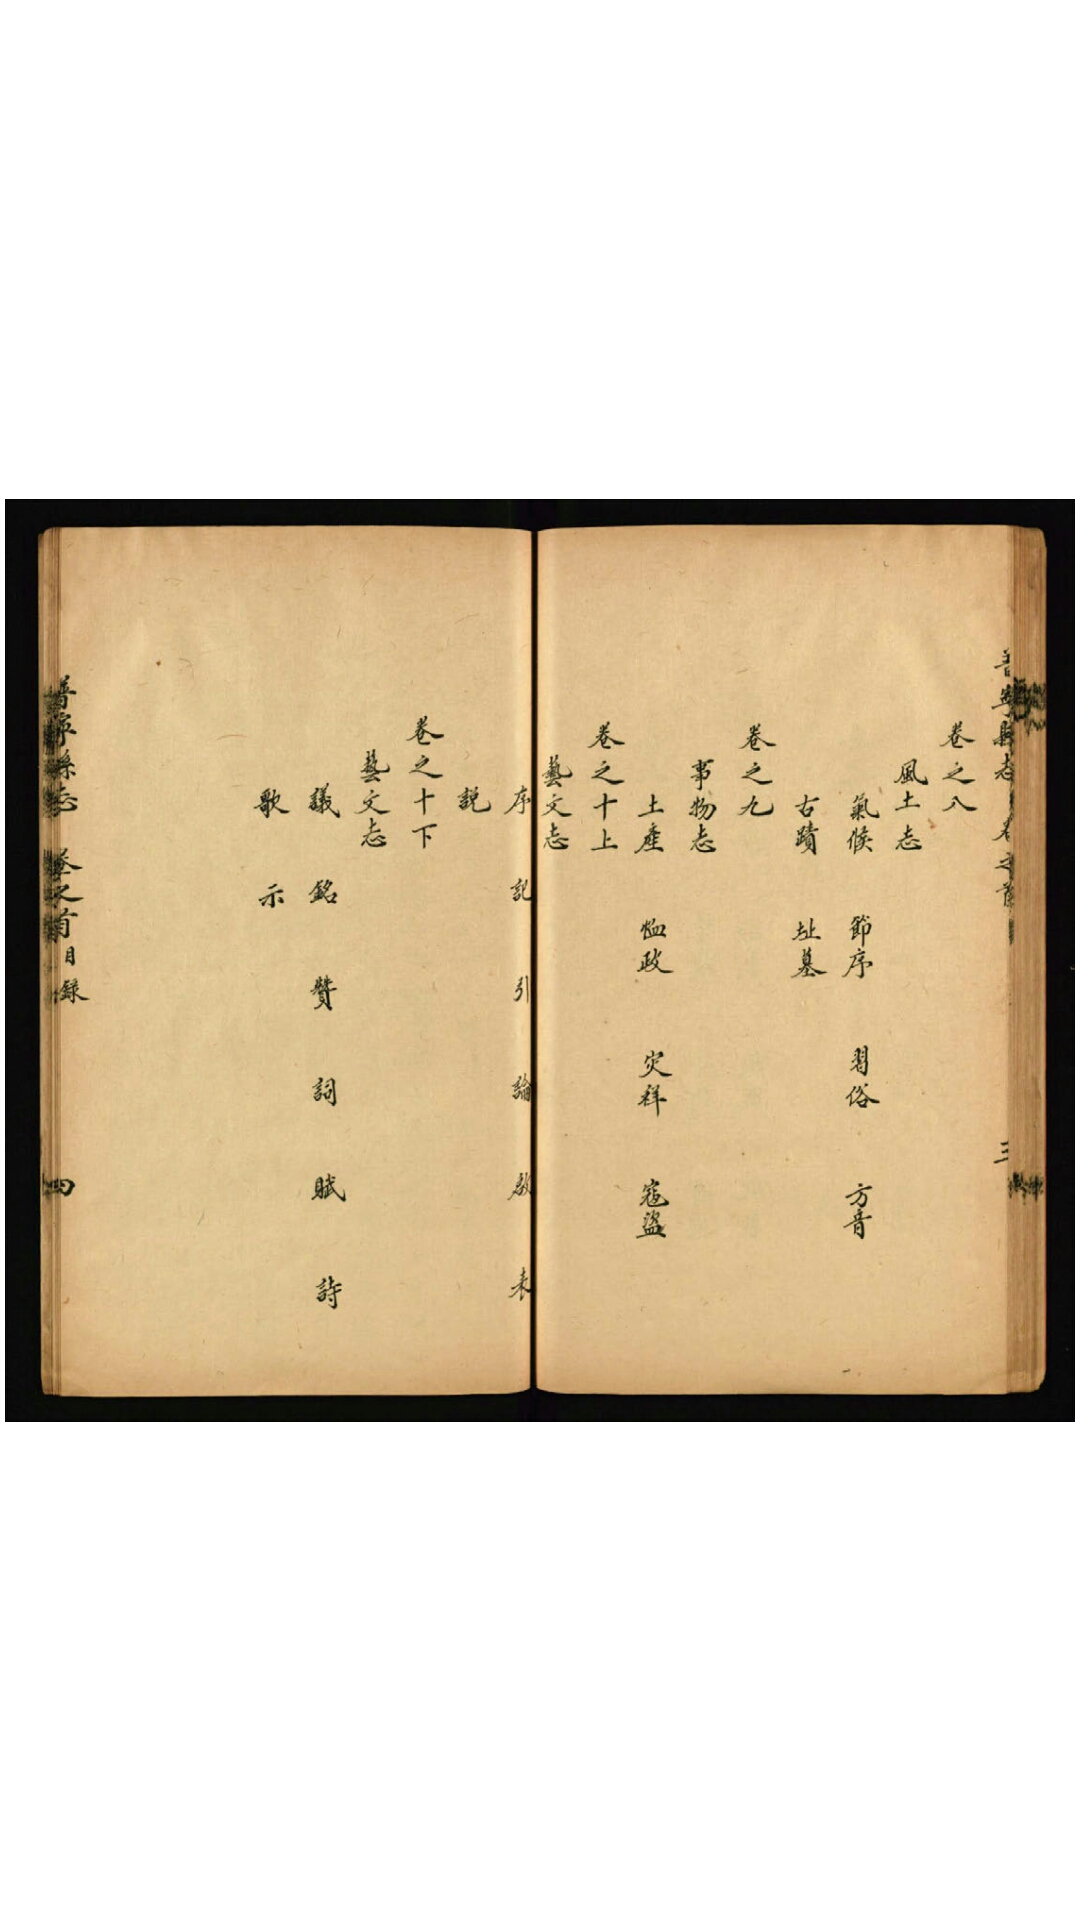 普寧縣志 卷之首 三
卷之八
風土志
氣候 節序 習俗 方音
古蹟 坵墓
卷之九
事物志
土產 恤政 灾祥 寇盜
卷之十上
藝文志
序 記 引 論 啟 表
説
卷之十下
藝文志
議 銘 贊 詞 賦 詩
歌 示
普寧縣志 卷之首 目録 四